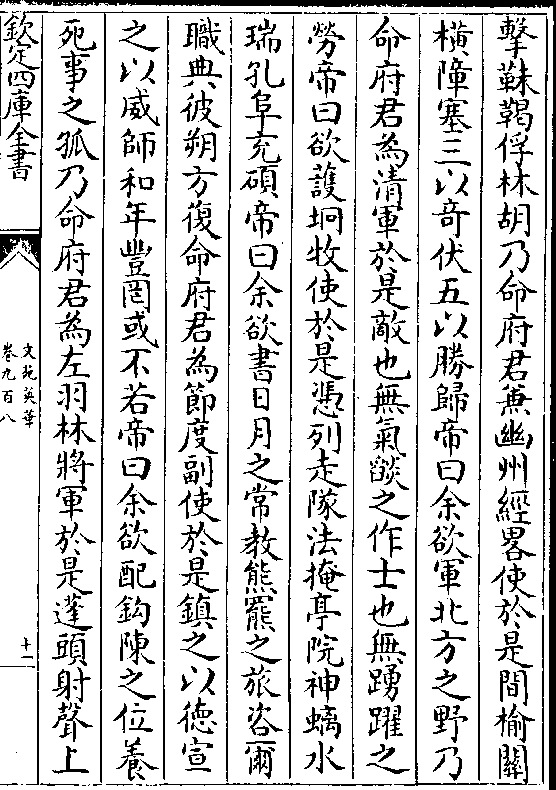 擊靺鞨俘林胡乃命府君兼幽州經畧使於是間榆關
橫障塞三以奇伏五以勝歸帝曰余欲軍北方之野乃
命府君為清軍於是敵也無氣燄之作士也無踴躍之
勞帝曰欲護坰牧使於是慿列走隊法掩亭院神螭水
瑞孔阜充碩帝曰余欲書日月之常教熊羆之旅咨爾
職典彼朔方復命府君為節度副使於是鎮之以德宣
之以威師和年豐罔或不若帝曰余欲配鈎陳之位養
死事之孤乃命府君為左羽林將軍於是蓬頭射聲上
欽定四庫全書
文苑英華
卷九百八
十一